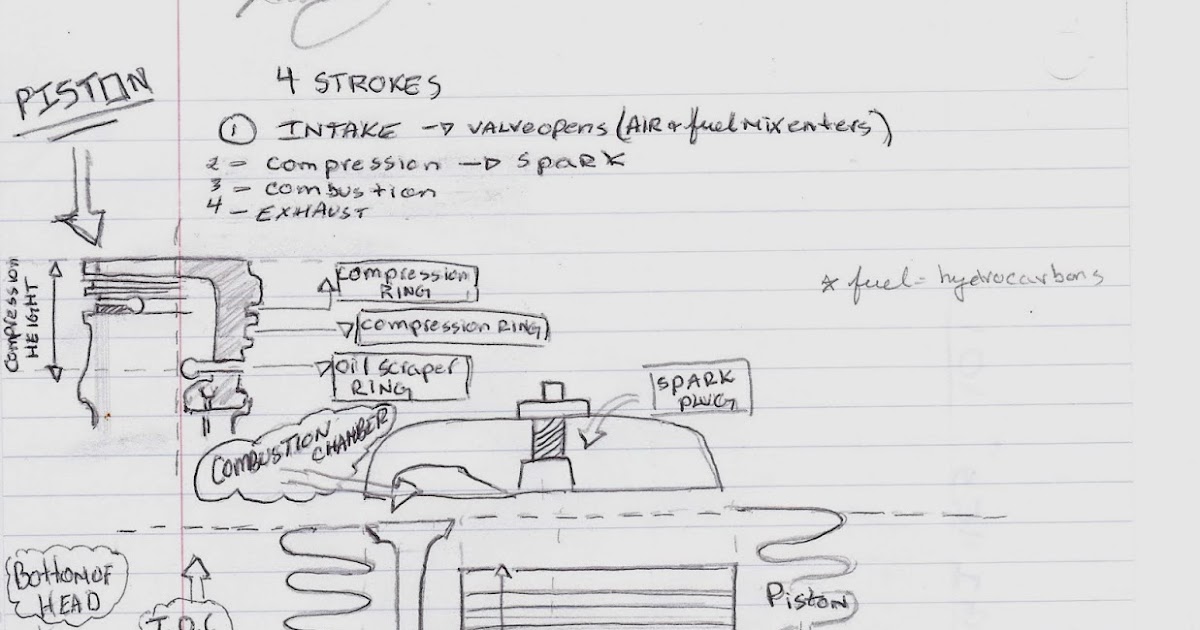 PISTON
4 STROKES
① INTAKE → VALVE opens (AIR & fuel Mix enters)
2 = compression → spark
3 = combustion
4 - EXHAUST
compression
HEIGHT
compression
RING
compression RING
oil scraper
RING
* fuel = hydrocarbons
SPARK
PLUG
COMBUSTION
CHAMBER
BOTTOM OF
HEAD
T.D.C
Piston